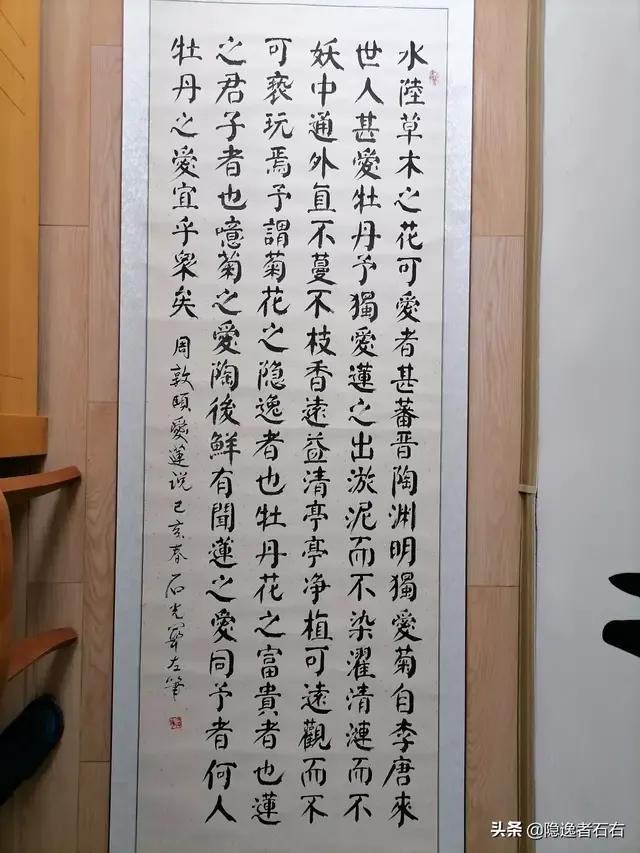 水陸草木之花可愛者甚蕃晋陶渊明獨愛菊自李唐來
世人甚愛牡丹予獨愛蓮之出淤泥而不染濯清漣而不
妖中通外直不蔓不枝香遠益清亭亭净植可遠觀而不
可褻玩焉予謂菊花之隐逸者也牡丹花之富貴者也蓮
之君子者也噫菊之愛陶後鮮有聞蓮之愛同予者何人
牡丹之愛宜乎衆矣 周敦頤愛蓮说 己亥春 石光左筆
头条 @隐逸者石右